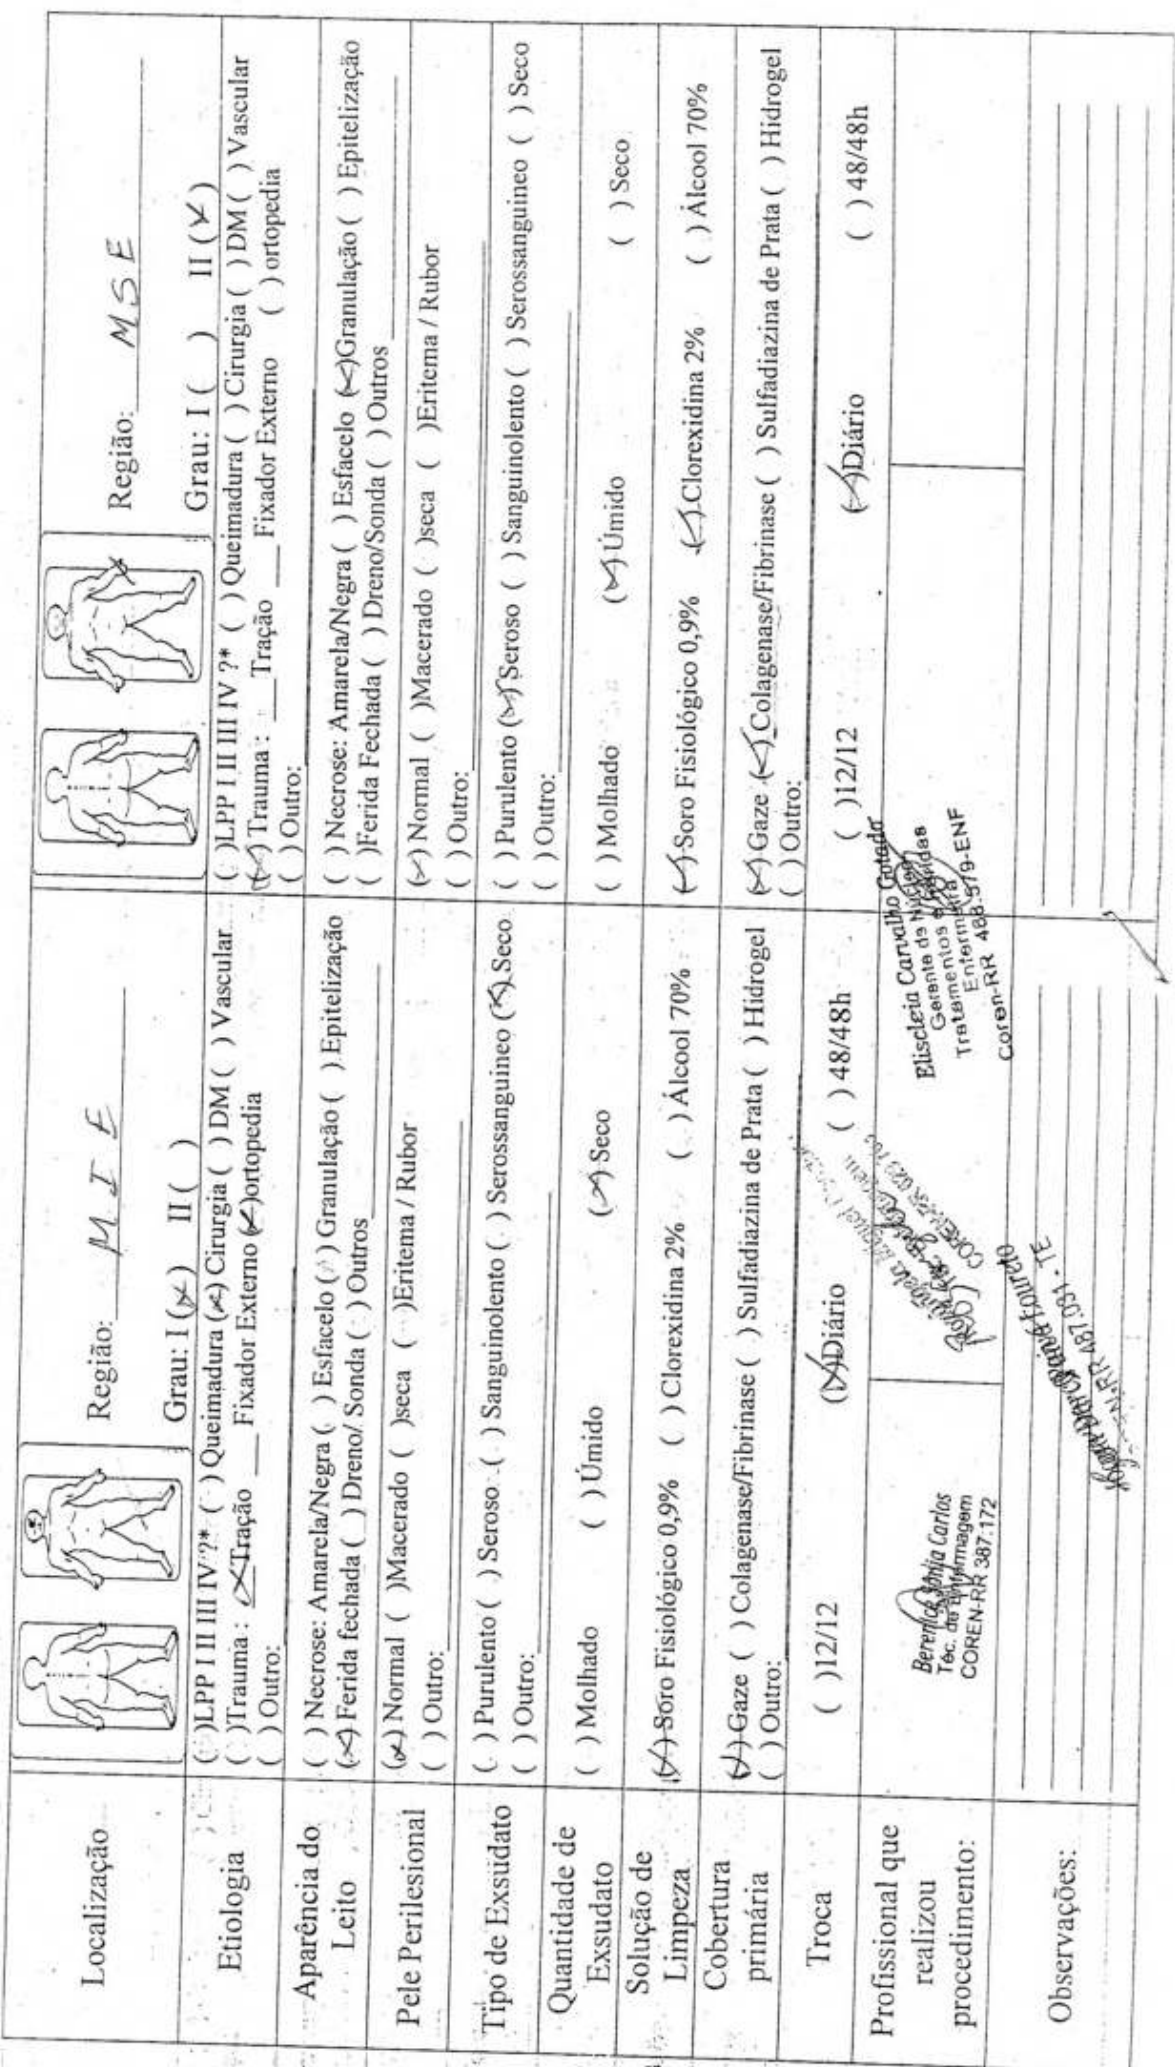 Localização
Região: MIE
Grau: I (x) II ( )
Região: MSE
Grau: I ( ) II (x)
Etiologia
( )LPP I II III IV ?* ( ) Queimadura (x) Cirurgia ( ) DM ( ) Vascular
( )Trauma : xTração ___ Fixador Externo (x)ortopedia
( ) Outro:
( )LPP I II III IV ?* ( ) Queimadura ( ) Cirurgia ( ) DM ( ) Vascular
(x) Trauma : ___Tração ___Fixador Externo ( ) ortopedia
( ) Outro:
Aparência do
Leito
( ) Necrose: Amarela/Negra ( ) Esfacelo ( ) Granulação ( ) Epitelização
(x) Ferida fechada ( ) Dreno/ Sonda ( ) Outros
( ) Necrose: Amarela/Negra ( ) Esfacelo (x)Granulação ( ) Epitelização
( )Ferida Fechada ( ) Dreno/Sonda ( ) Outros
Pele Perilesional
(x) Normal ( )Macerado ( )seca ( )Eritema / Rubor
( ) Outro:
(x) Normal ( )Macerado ( )seca ( )Eritema / Rubor
( ) Outro:
Tipo de Exsudato
( ) Purulento ( ) Seroso ( ) Sanguinolento ( ) Serossanguineo (x) Seco
( ) Outro:
( ) Purulento (x) Seroso ( ) Sanguinolento ( ) Serossanguineo ( ) Seco
( ) Outro:
Quantidade de
Exsudato
( ) Molhado ( ) Úmido (x) Seco
( ) Molhado (x) Úmido ( ) Seco
Solução de
Limpeza
(x) Soro Fisiológico 0,9% ( ) Clorexidina 2% ( ) Álcool 70%
(x) Soro Fisiológico 0,9% (x) Clorexidina 2% ( ) Álcool 70%
Cobertura
primária
(x) Gaze ( ) Colagenase/Fibrinase ( ) Sulfadiazina de Prata ( ) Hidrogel
( ) Outro:
(x) Gaze (x) Colagenase/Fibrinase ( ) Sulfadiazina de Prata ( ) Hidrogel
( ) Outro:
Troca
( )12/12 (x)Diário ( ) 48/48h
( )12/12 (x)Diário ( ) 48/48h
Profissional que
realizou
procedimento:
Berenice Sônia Carlos
Téc. de Enfermagem
COREN-RR 387.172
Eliscleia Carvalho
Gerente de Núcleo
Tratamentos e Feridas
Enfermeira
Coren-RR 488-579-ENF
RR 487.031 - TE
Observações: